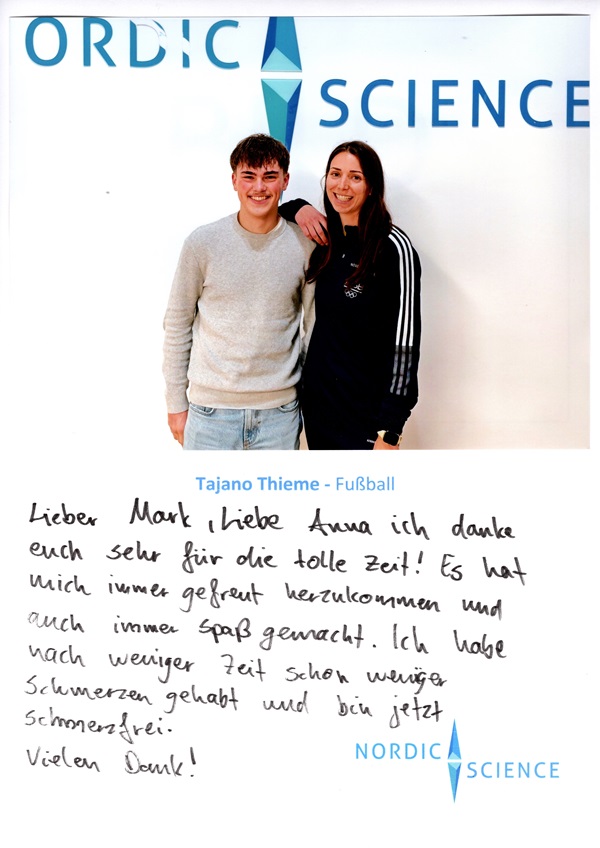 ORDIC
SCIENCE
Tajano Thieme - Fußball
Lieber Mark, Liebe Anna ich danke
euch sehr für die tolle Zeit! Es hat
mich immer gefreut herzukommen und
auch immer spaß gemacht. Ich habe
nach weniger Zeit schon weniger
Schmerzen gehabt und bin jetzt
schmerzfrei.
Vielen Dank!
NORDIC
SCIENCE